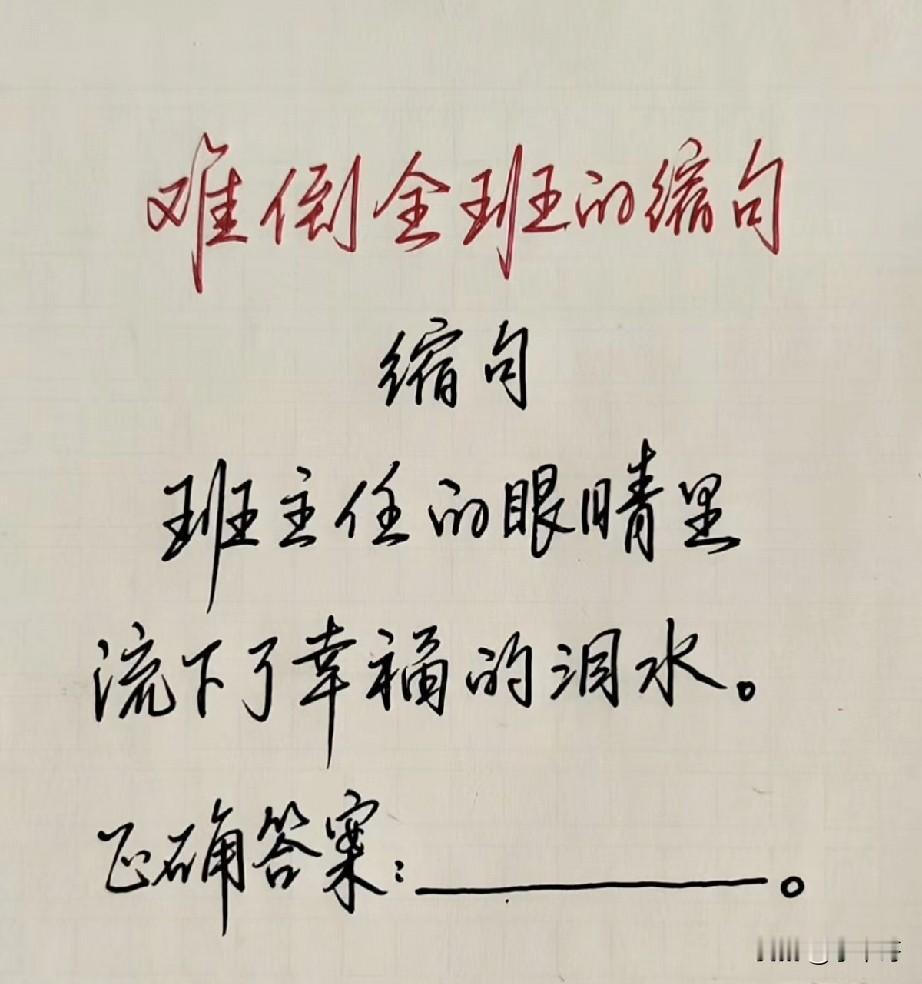 难倒全班的缩句
缩句
班主任的眼睛里
流下了幸福的泪水。
正确答案:________。